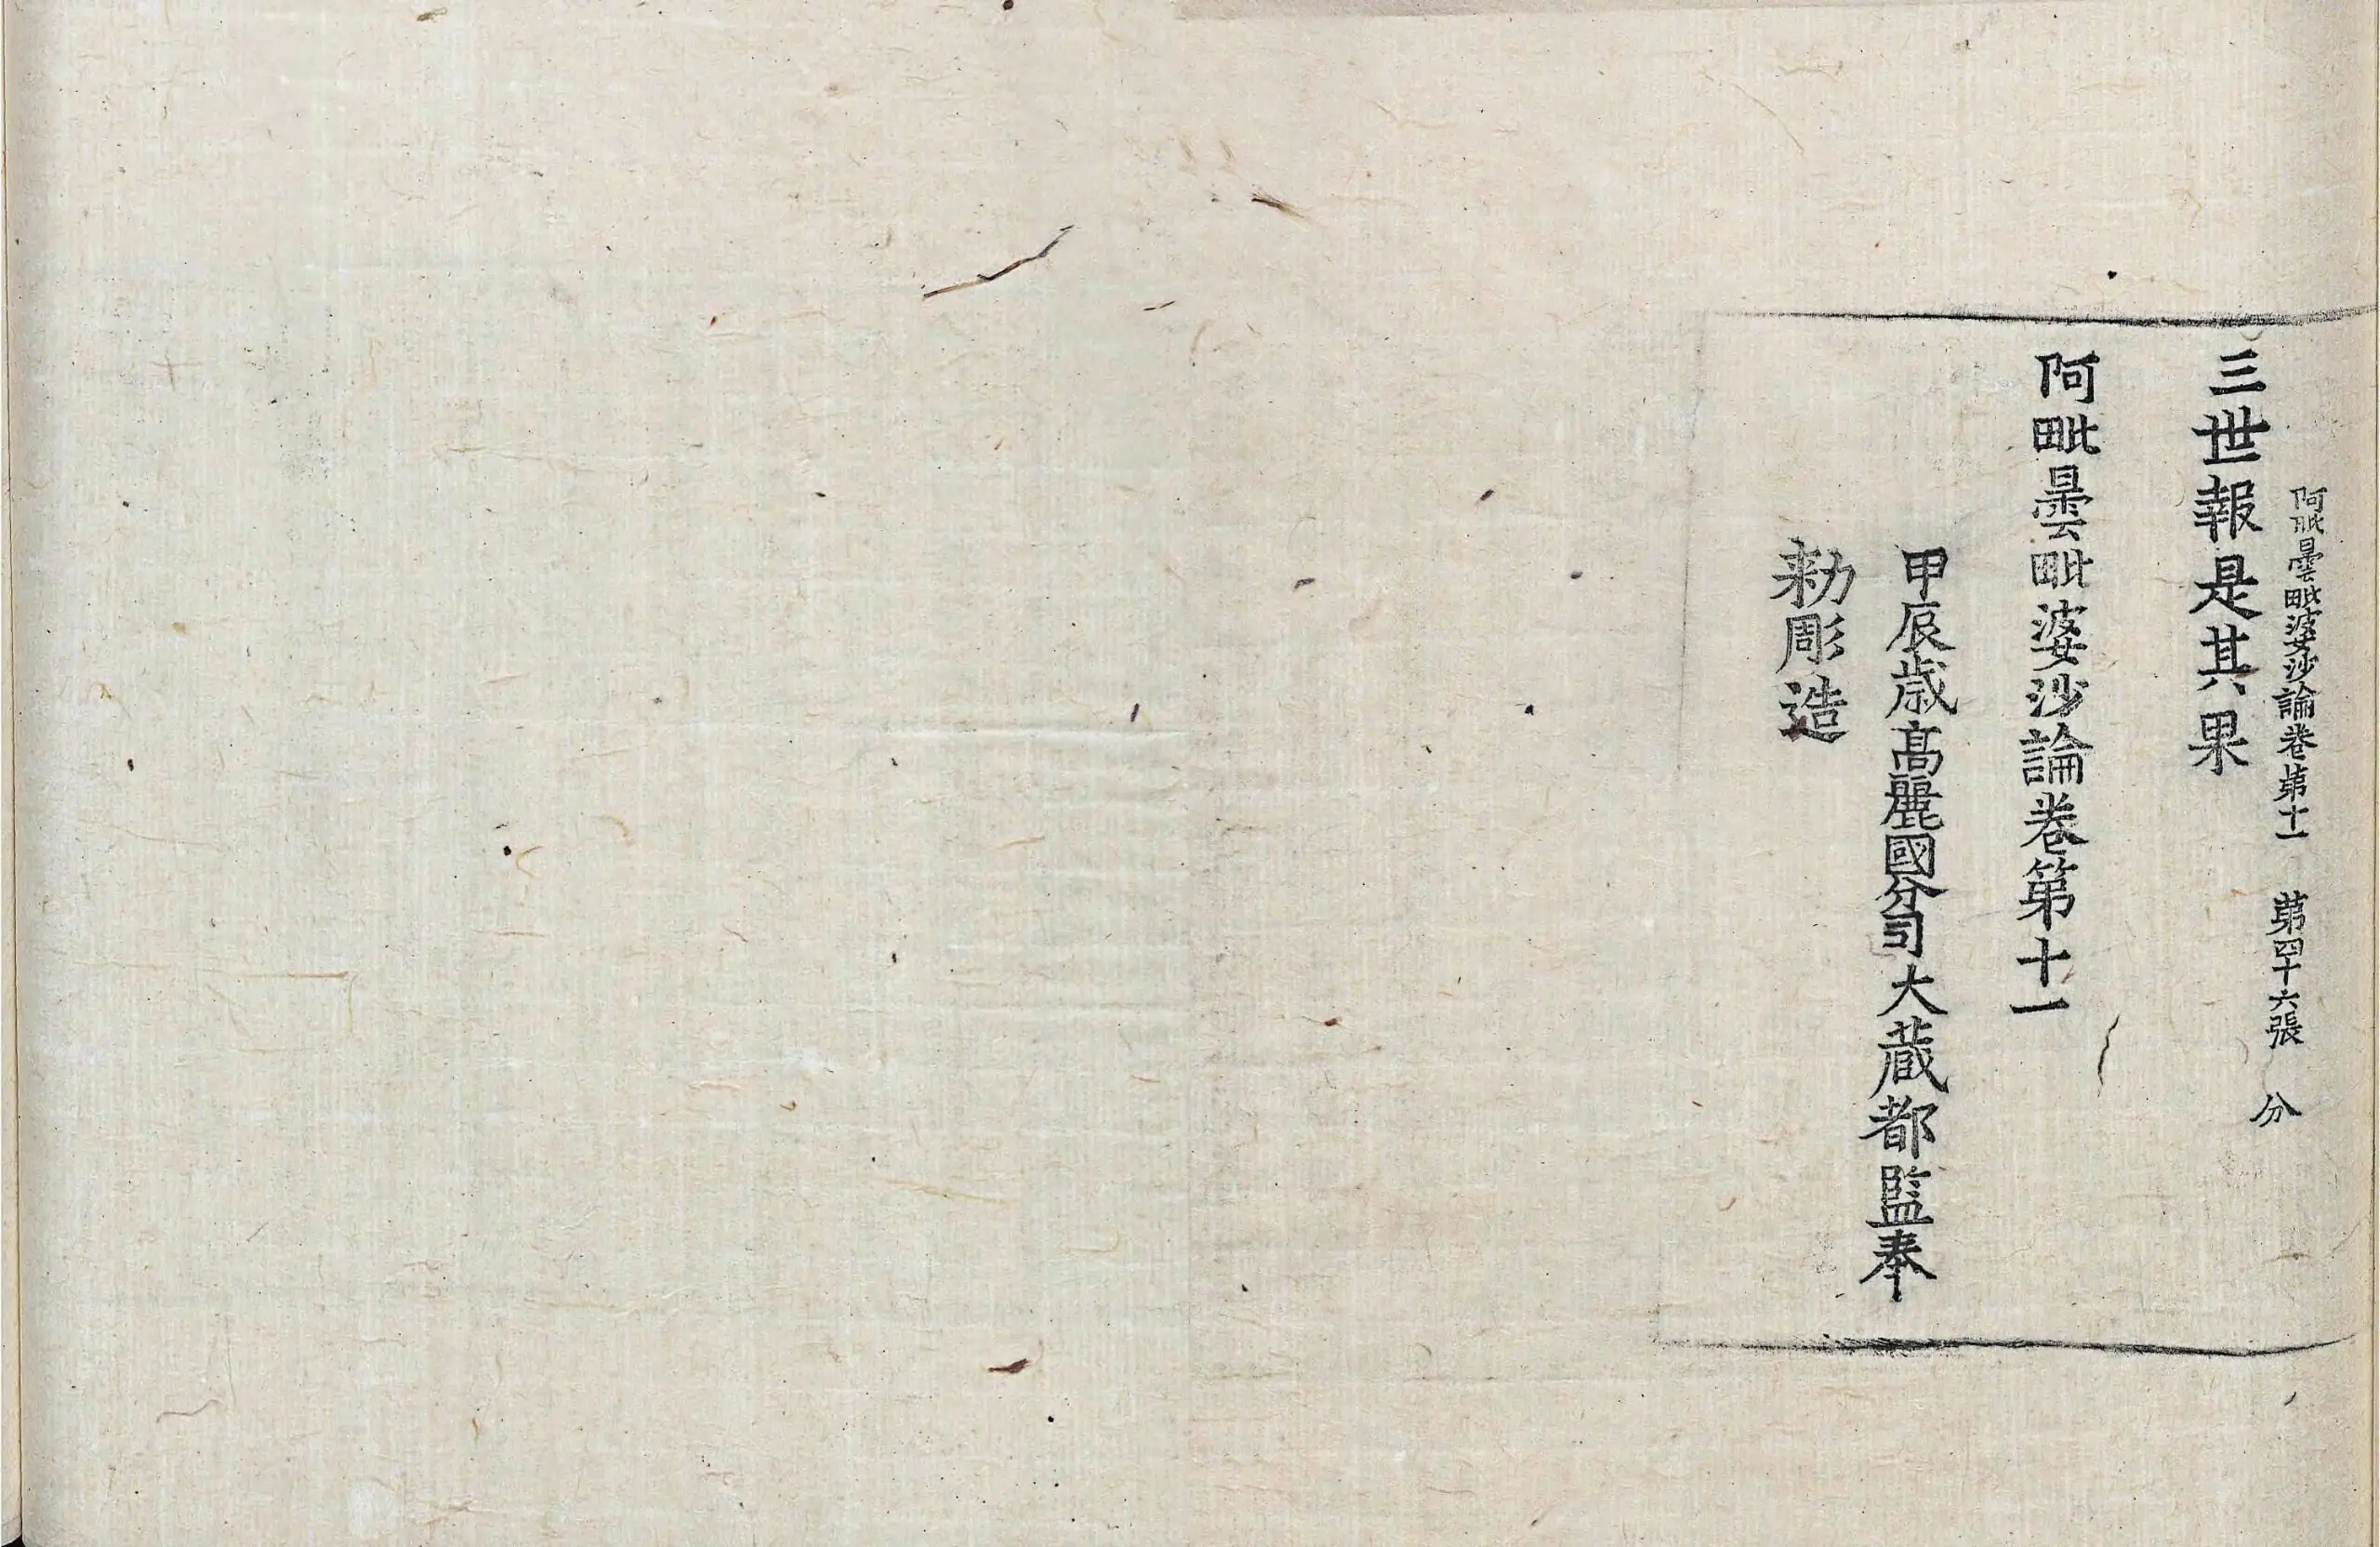 阿毗曇毗婆沙論卷第十一 第四十六張 分
三世報是其果
阿毗曇毗婆沙論卷第十一
甲辰歳髙麗國分司大藏都監奉
勑彫造